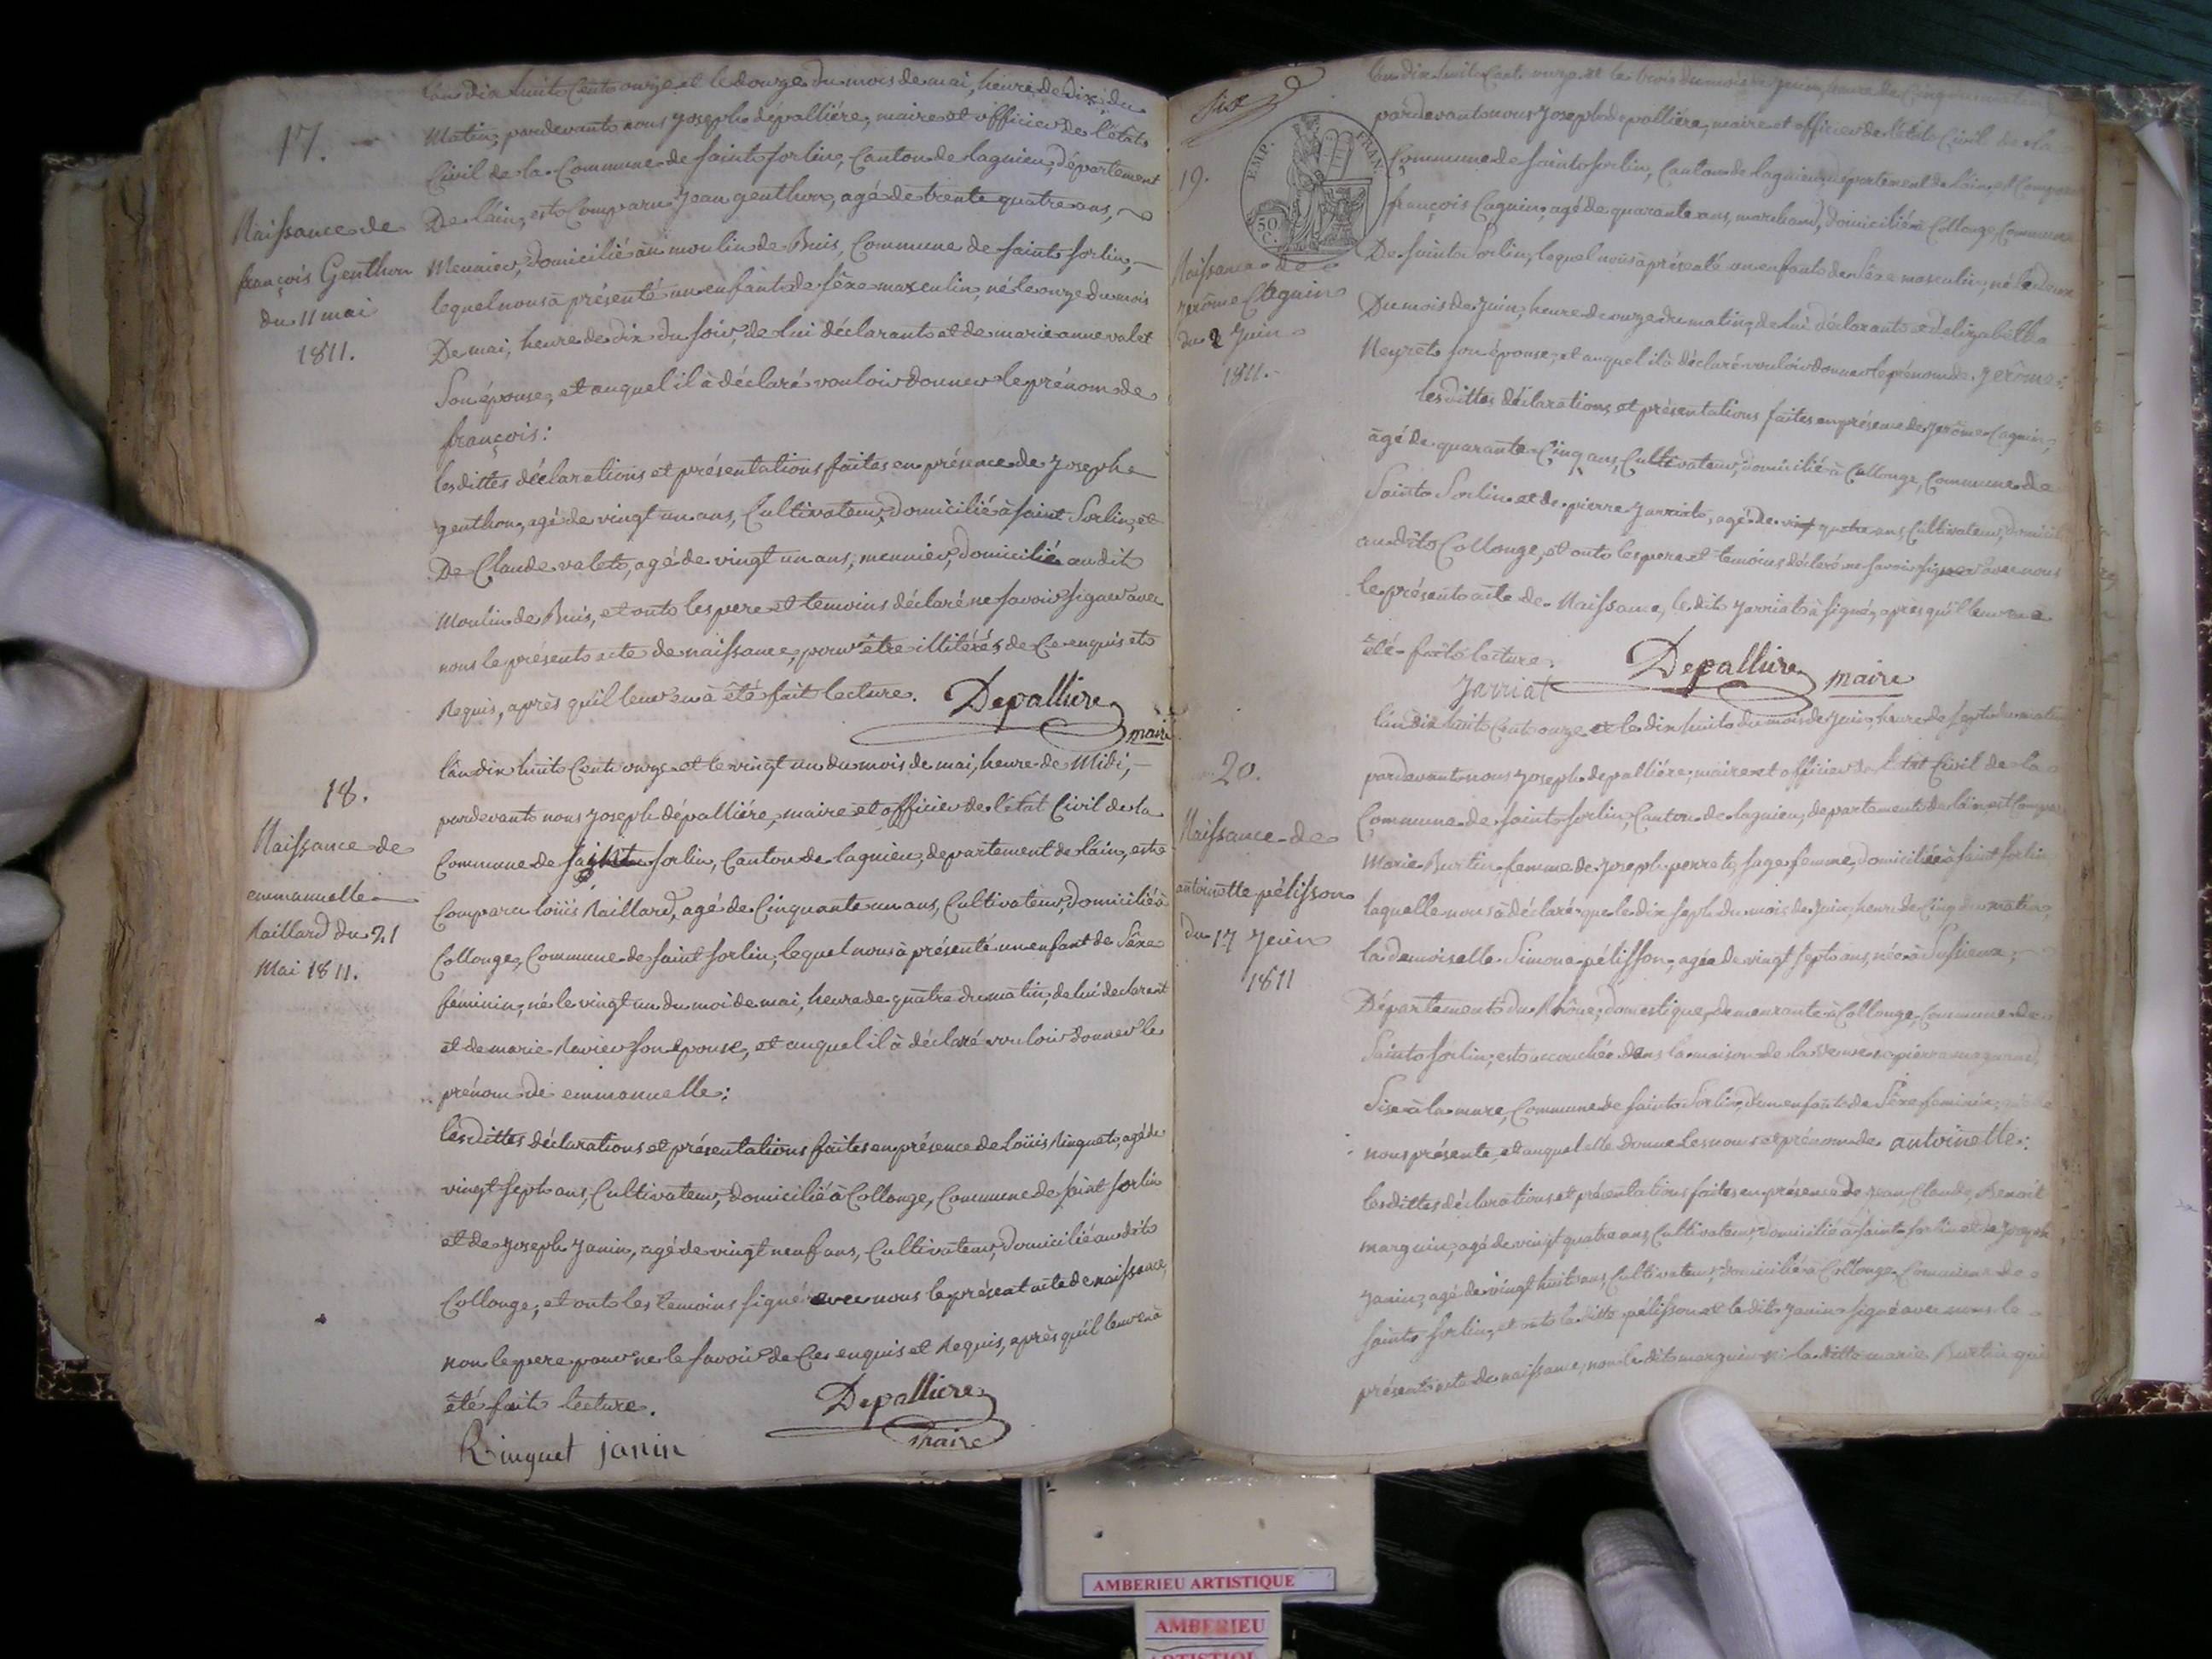 17.
Naissance de
françois Genthon
du 11 mai
1811.
L'an dix huit Cent onze et le douze du mois de mai, heure de dix du
Matin, pardevant nous Joseph dépalliére, maire et officier de l'état
Civil de la Commune de saint sorlin, Canton de lagnieu, département
De l'ain, est Comparu Jean genthon, agé de trente quatre ans,
Meunier, domicilié au moulin de Buis, Commune de saint sorlin,
lequel nous à présenté un enfant de sêxe masculin, né le onze du mois
De mai, heure de dix du soir, de lui déclarant et de marie anne valet
Son épouse, et auquel il à déclaré vouloir donner le prénom de
françois:
les dittes déclarations et présentations faites en présence de Joseph
genthon, agé de vingt un ans, Cultivateur, domicilié à saint Sorlin, et
De Claude valet, agé de vingt un ans, meunier, domicilié au dit
Moulin de Buis, et ont les pere et temoins déclaré ne savoir signer avec
nous le présent acte de naissance, pour être illitérés de Ce enquis et
Requis, après qu'il leur en à été fait lecture. Depalliere
maire
18.
Naissance de
emmanuelle
Raillard du 21
Mai 1811.
l'an dix huit Cent onze et le vingt un du mois de mai, heure de Midi,
pardevant nous Joseph dépalliére, maire et officier de l'état Civil de la
Commune de saint sorlin, Canton de lagnieu, departement de l'ain, est
Comparu loüis Raillard, agé de Cinquante un ans, Cultivateur, domicilié à
Collonge, Commune de saint sorlin, lequel nous à présenté un enfant de Sêxe
féminin, né le vingt un du moi de mai, heure de quatre du matin, de lui declarant
et de marie Ravier son épouse, et auquel il à déclaré vouloir donner le
prénom de emmanuelle:
les dittes déclarations et présentations faites en présence de Loüis Ringuet, agé de
vingt sept ans, Cultivateur, domicilié à Collonge, Commune de saint sorlin
et de Joseph Janin, agé de vingt neuf ans, Cultivateur, domicilié au dit
Collonge, et ont les temoins signé avec nous le présent acte de naissance,
non le pere pour ne le savoir de Ce enquis et Requis, après qu'il leur en à
été fait lecture. Depalliere
Maire
Ringuet janin
six
EMP. FRAN.
50 C.
19.
Naissance de
Jerôme Caguin
du 2 Juin
1811.
l'an dix huit Cent onze et le trois du mois de Juin, heure de Cinq du matin
pardevant nous Joseph depalliére, maire et officier de l'état Civil de la
Commune de saint sorlin, Canton de lagnieu, département de l'ain, est Comparu
françois Caguin, agé de quarante ans, marchand, domicilié à Collonge, Commune
De saint Sorlin, lequel nous à présenté un enfant de sêxe masculin, né le deux
Du mois de Juin, heure de onze du matin, de lui déclarant et d'elizabeth
Neyret son épouse, et auquel il à déclaré vouloir donner le prénom de Jerôme:
les dittes déclarations et présentations faites en présence de Jerôme Caguin,
âgé de quarante Cinq ans, Cultivateur, domicilié à Collonge, Commune de
Saint Sorlin et de pierre Jarriat, agé de vingt quatre ans Cultivateur, domicilié
au dit Collonge, et ont les pere et temoins déclaré ne savoir signer avec nous
le présent acte de Naissance, le dit Jarriat à signé, après qu'il leur en a
été fait lecture. Depalliere maire
Jarriat
20.
Naissance de
antoinette pélisson
du 17 Juin
1811
l'an dix huit Cent onze et le dix huit du mois de Juin, heure de sept du matin
pardevant nous Joseph depalliére, maire et officier de l'état Civil de la
Commune de saint sorlin, Canton de lagnieu, departement de l'ain est Comparu
Marie Burtin femme de Joseph perret, sage femme, domiciliée à saint sorlin
laquelle nous à déclaré que le dix sept du mois de Juin, heure de Cinq du matin,
la demoiselle Simone pélisson, agée de vingt sept ans, née à
Département du Rhône, domestique, demeurante à Collonge, Commune de
Saint sorlin, est accouchée dans la maison de la veuve de pierre
Sise à la mure, Commune de saint Sorlin, d'un enfant de Sêxe feminin,
nous présente, et auquel elle donne les nom et prénom de antoinette:
les dittes déclarations et présentations faites en présence de Jean Claude Benoit
marguin, agé de vingt quatre ans, Cultivateur, domicilié à saint sorlin et de Joseph
Janin, agé de vingt huit ans, Cultivateur, domicilié à Collonge, Commune de
saint sorlin, et ont la ditte pélisson et le dit Janin signé avec nous le
présent acte de naissance, non le dit marguin ni la ditte marie Burtin qui
AMBERIEU ARTISTIQUE
AMBERIEU
ARTISTIQUE